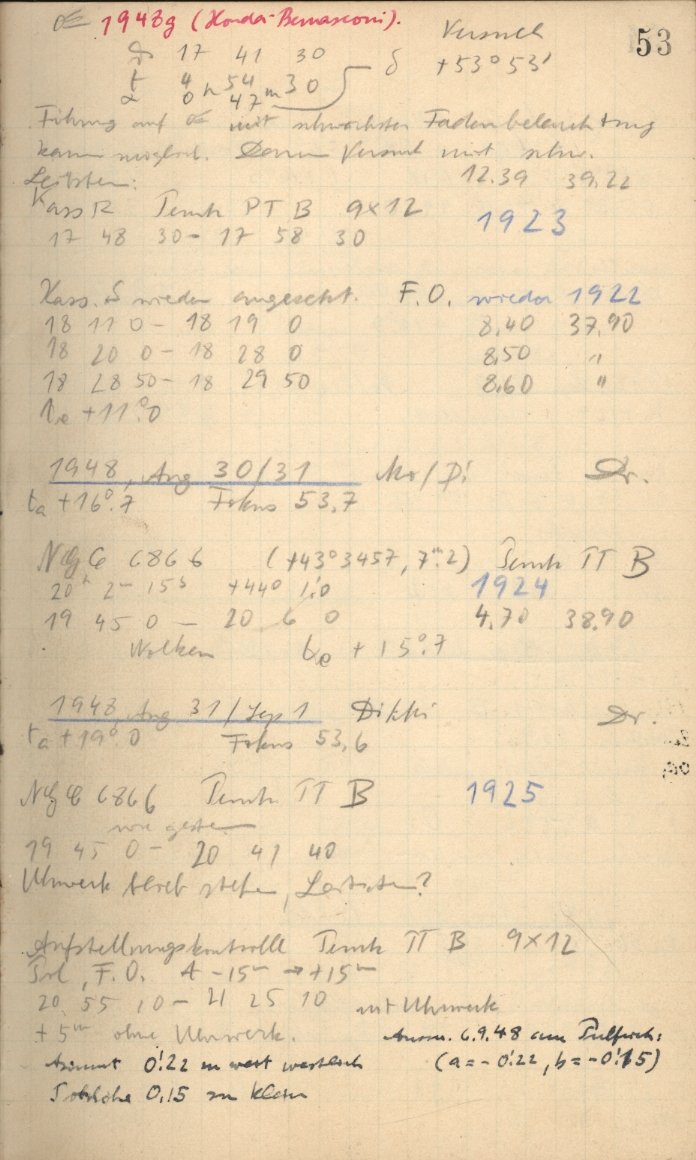 53
☄ 1948g (Honda-Bernasconi).
Versuch
ϑ 17 41 30
t 4 h 54 m 30
δ +53° 53'
α 0 47
Führung auf ☄ mit schwächster Fadenbeleuchtung
kaum möglich. Darum Versuch mit
Leitstern: 12.39 39.22
Kass R Pernk PT B 9x12 1923
17 48 30 - 17 58 30
Kass. S wieder angesetzt. F.O. wieder 1922
18 11 0 - 18 19 0 8,40 37,90
18 20 0 - 18 28 0 8,50 "
18 28 50 - 18 29 50 8,60 "
te +11°,0
1948, Aug 30/31 Mo/Di Dr.
ta +16°,7 Fokus 53,7
NGC 6866 (+43° 3457, 7m,2) Pernk TT B
20h 2m 15s +44° 1',0 1924
19 45 0 - 20 6 0 4,70 38,90
Wolken te +15°,7
1948, Aug 31/Sep 1 Di/Mi Dr.
ta +19°,0 Fokus 53,6
NGC 6866 Pernk TT B 1925
wie gestern
19 45 0 - 20 41 40
Uhrwerk blieb stehen, Leitstern?
Aufstellungskontrolle Pernk TT B 9x12
Pol, F.O. A -15m → +15m
20 55 10 - 21 25 10 mit Uhrwerk
+5m ohne Uhrwerk.
Ausm. 6.9.48 am Pulfrich:
Azimut 0',22 zu weit westlich (a = -0',22, b = -0',15)
Polhöhe 0,15 zu klein